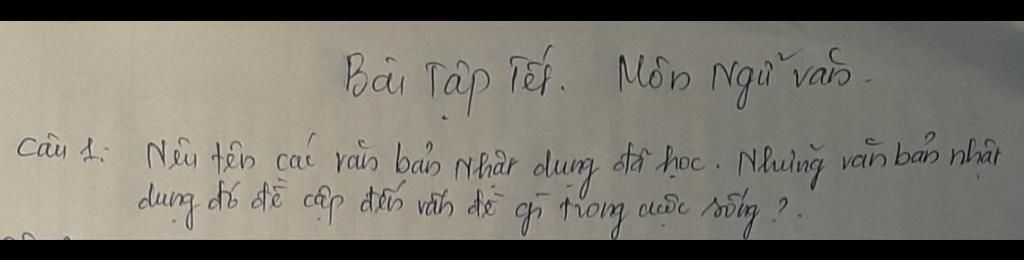 Bài Tập Tết. Môn Ngữ văn.
Câu 1: Nêu tên các văn bản Nhật dụng đã học. Những văn bản nhật
dụng đó đề cập đến vấn đề gì trong cuộc sống?.